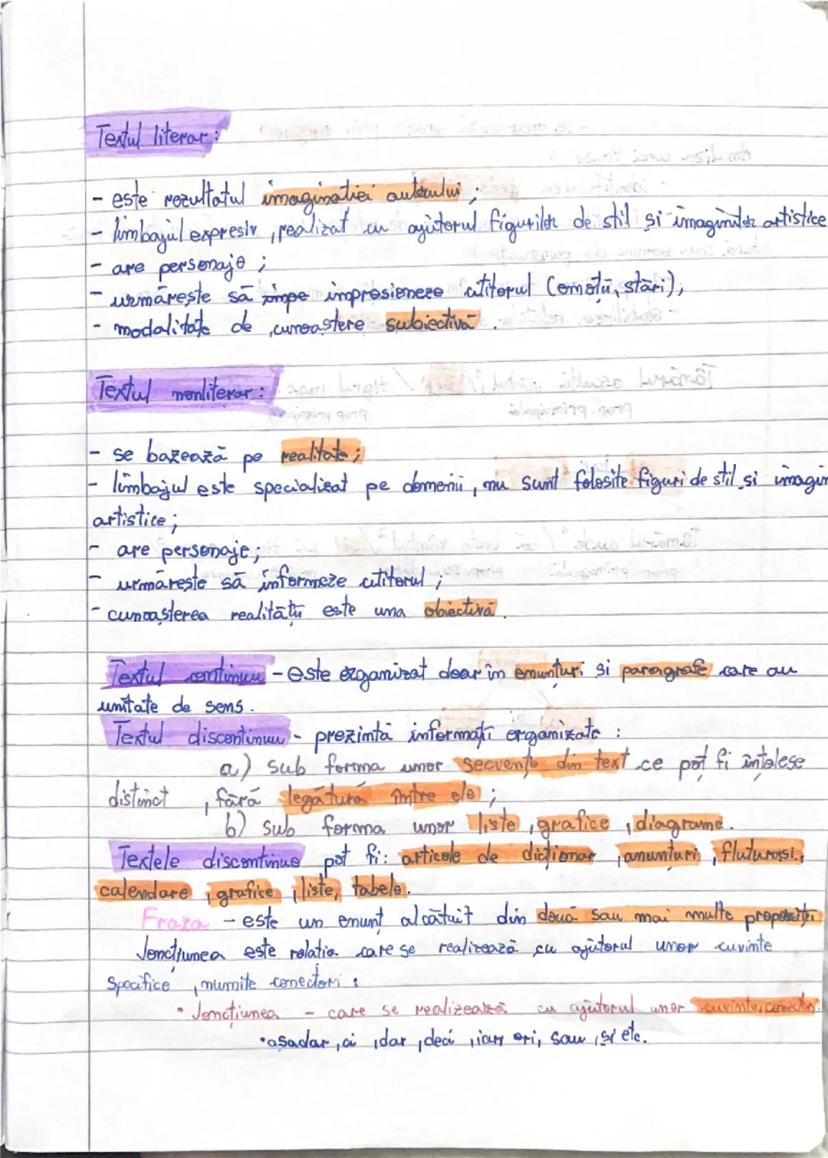 Textul literar:
- este rezultatul imaginatiei autorului;
- limbajul expresiv, realizat cu ajutorul figurilor de stil și imaginilor artistice
- are personaje;
- urmărește să impe impresioneze cititorul (emoții, stări);
- modalitate de cunoastere subiectivă.
Textul nonliterar:
- se bazează pe realitate;
- limbajul este specializat pe domenii, nu sunt folosite figuri de stil și imagin
artistice;
- are personaje;
- urmărește să informeze cititorul;
- cunoașterea realității este una obiectivă.
Textul continuu - este organizat doar în enunțuri și paragrafe care au
unitate de sens.
Textul discontinuu - prezintă informații organizate:
a) sub forma unor secvențe din text ce pot fi înțelese
distinct, fără legătură între ele;
b) sub forma unor liste, grafice, diagrame.
Textele discontinue pot fi: articole de dicționar, anunțuri, fluturași,
calendare, grafice, liste, tabele.
Fraza - este un enunț alcătuit din două sau mai multe propoziții
Joncțiunea este relația care se realizează cu ajutorul unor cuvinte
specifice, numite conectori:
• Joncțiunea - care se realizează cu ajutorul unor cuvinte,
• așadar, ci, dar, deci, iar, ori, sau, și etc.